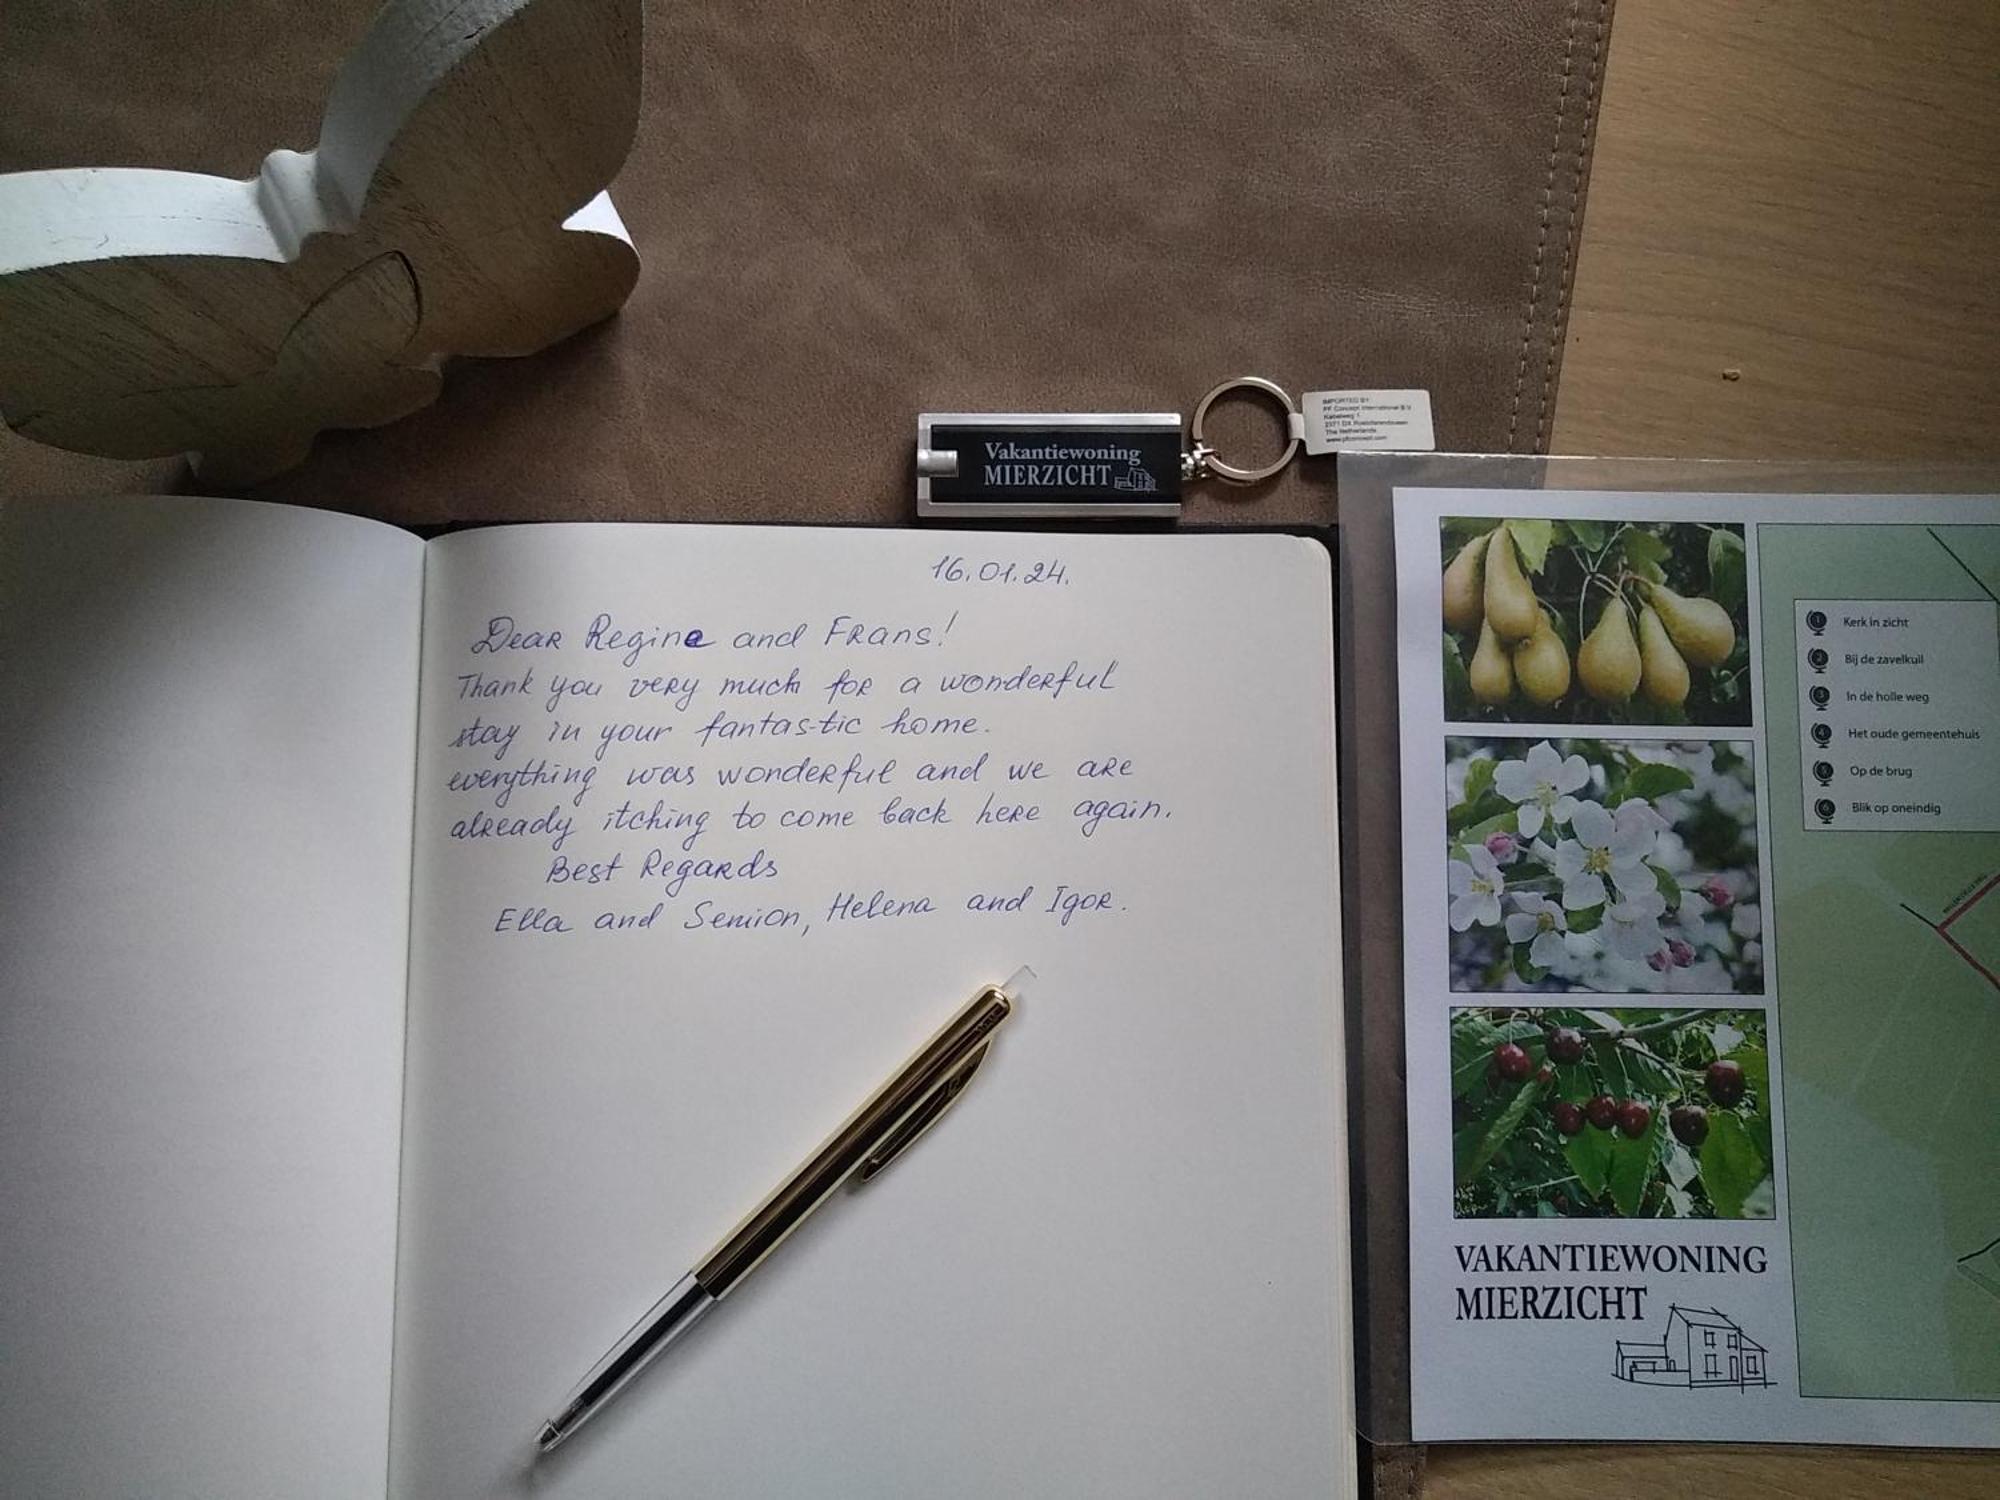 Vakantiewoning
MIERZICHT
IMPORTED BY
PF Concept International B.V.
Kabelweg 1
2371 DX Roelofarendsveen
The Netherlands
www.pfconcept.com
16.01.24.
Dear Regine and Frans!
Thank you very much for a wonderful
stay in your fantastic home.
everything was wonderful and we are
already itching to come back here again.
Best Regards
Ella and Semion, Helena and Igor.
1 Kerk in zicht
2 Bij de zavelkuil
3 In de holle weg
4 Het oude gemeentehuis
5 Op de brug
6 Blik op oneindig
VAKANTIEWONING
MIERZICHT